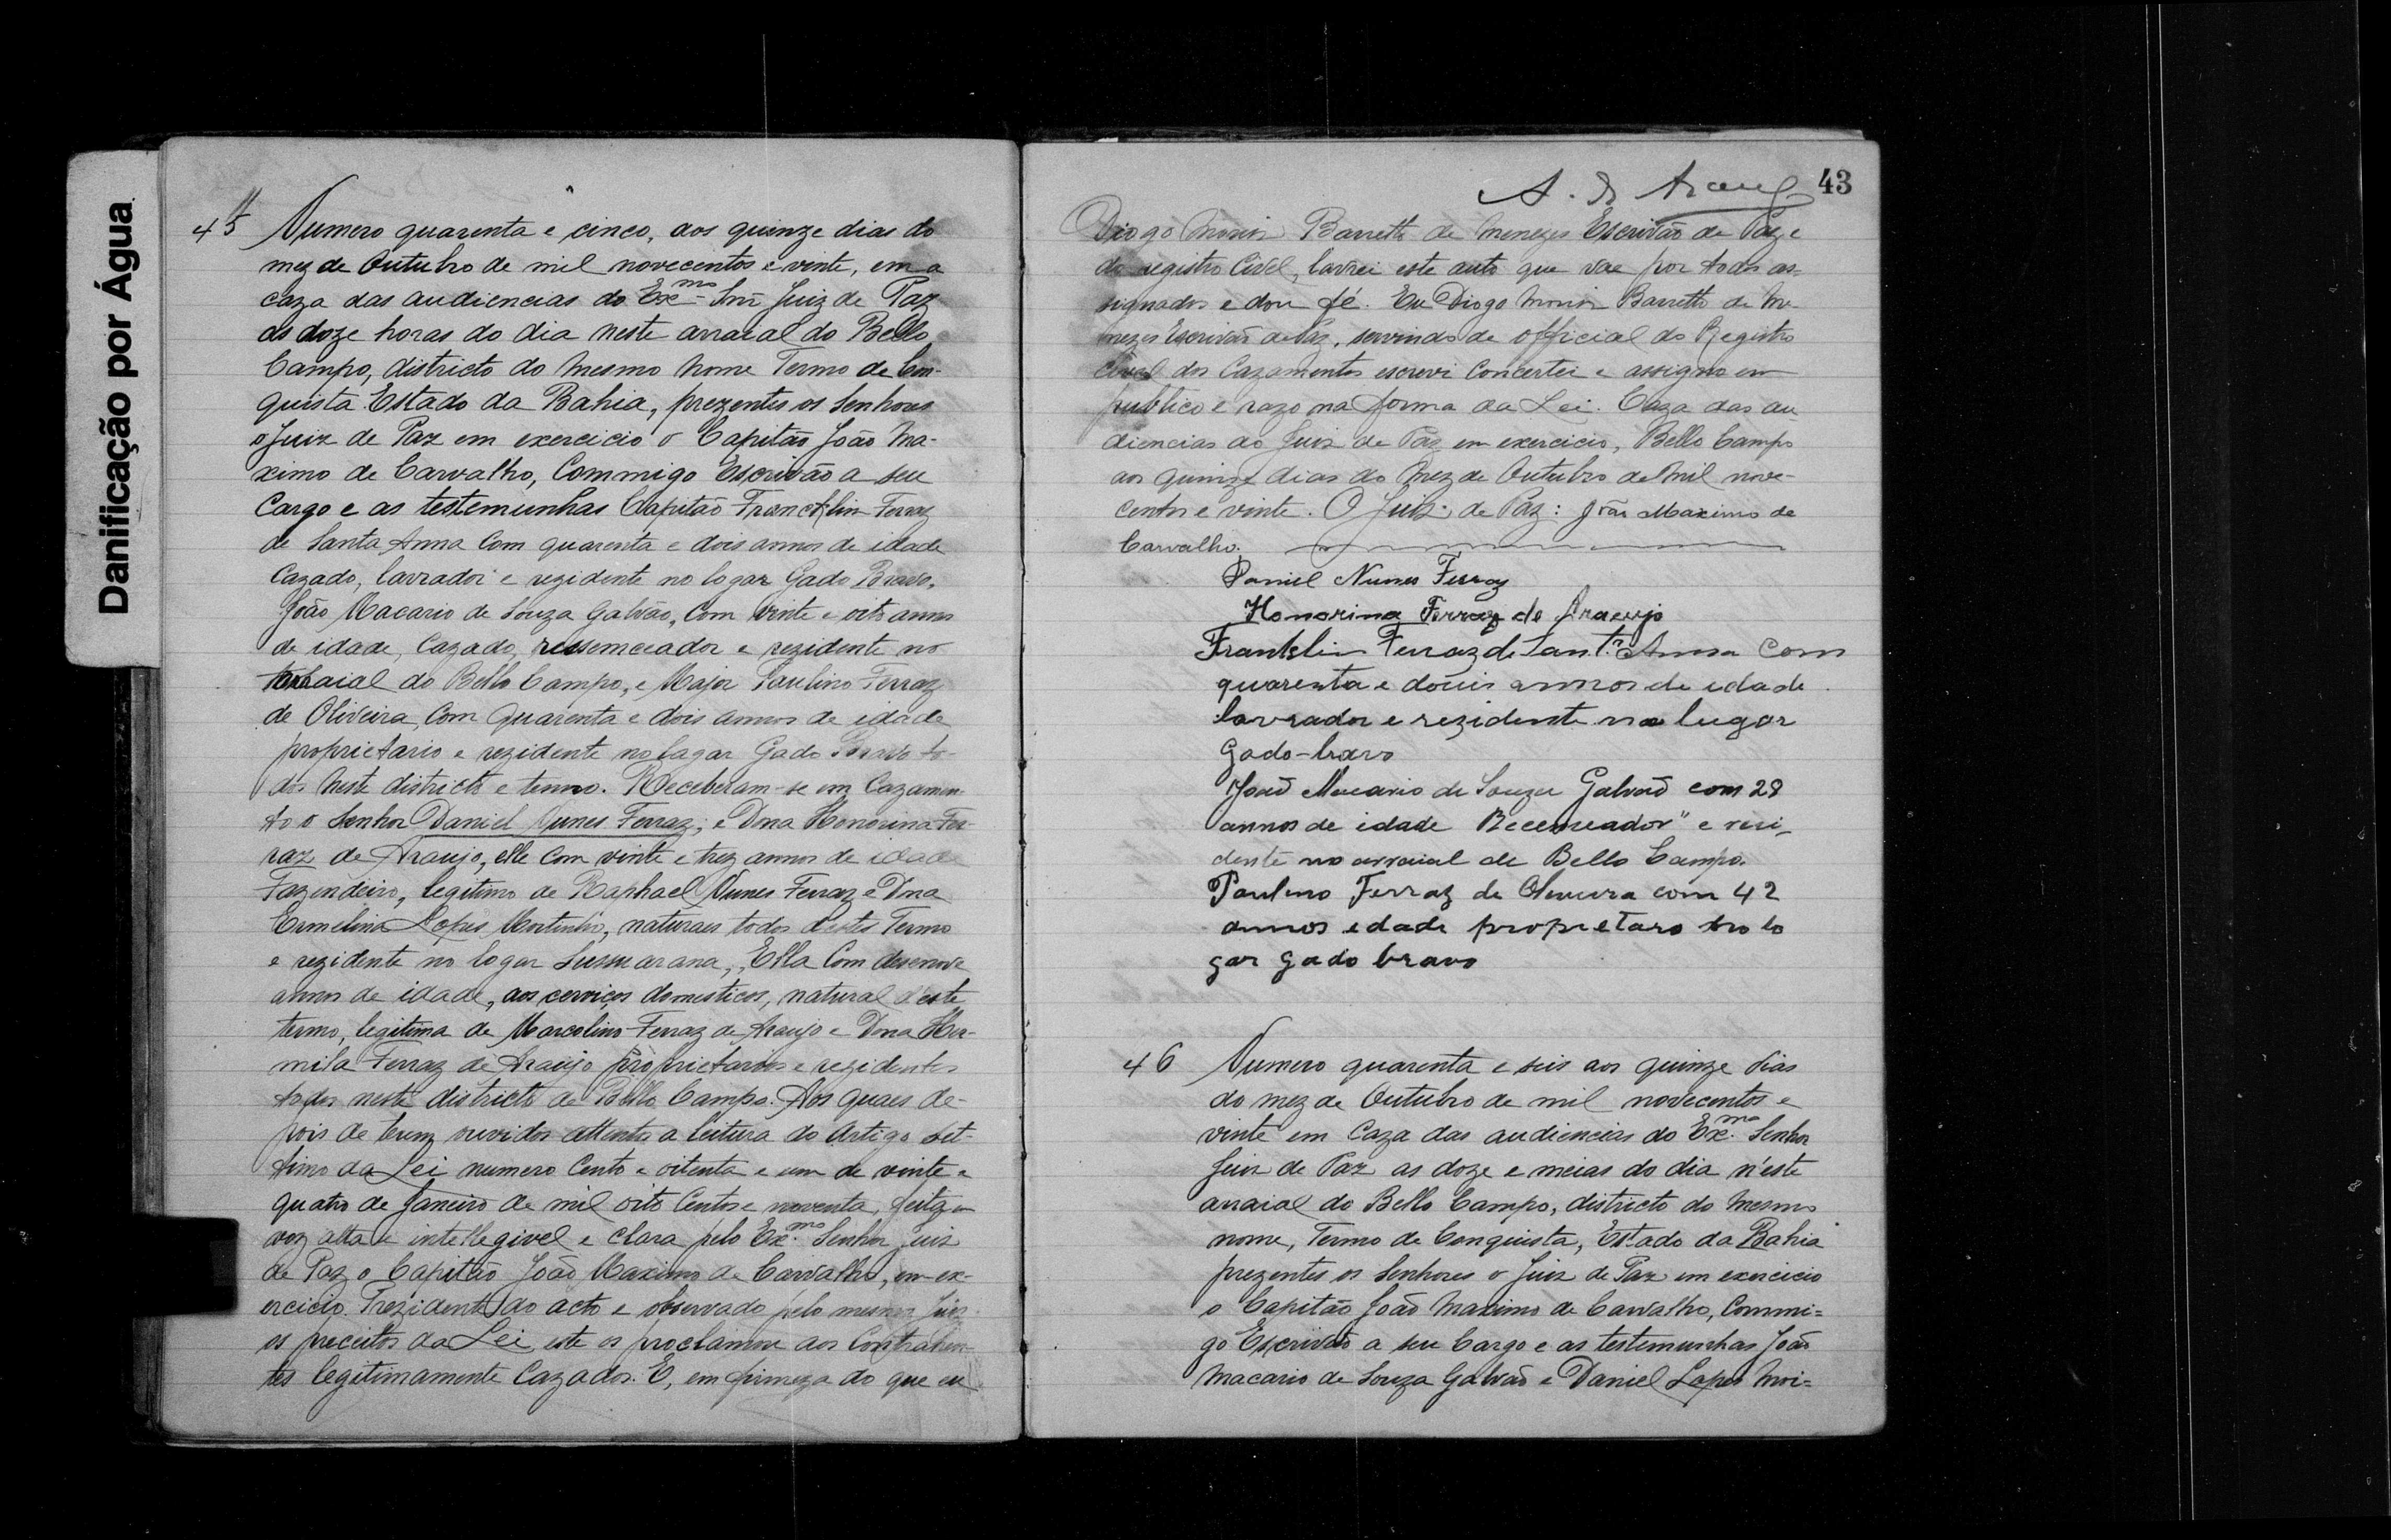 Danificação por Água
45 Numero quarenta e cinco, aos quinze dias do
mez de Outubro de mil novecentos e vinte, em a
caza das audiencias do Exmo Snr Juiz de Paz
as doze horas do dia neste arraial do Bello
Campo, districto do mesmo nome Termo de Con-
quista Estado da Bahia, prezentes os Senhores
o Juiz de Paz em exercicio o Capitão João Ma-
ximo de Carvalho, Commigo Escrivão a seu
Cargo e as testemunhas Capitão Francklin Ferraz
de Santa Anna Com quarenta e dois annos de idade
Cazado, lavrador e rezidente no logar Gado Bravo,
João Macario de Souza Galvão, Com vinte e oito annos
de idade, Cazado, ressemceador e rezidente no
arraial do Bello Campo, e Major Paulino Ferraz
de Oliveira, Com quarenta e dois annos de idade
proprietario e rezidente no lagar Gado Bravo to-
dos neste districto e termo. Receberam-se em Cazamen-
to o Senhor Daniel Nunes Ferraz, e Dona Honorina Fer-
raz de Araujo, elle Com vinte e trez annos de idade
Fazendeiro, legitimo de Raphael Nunes Ferraz e Dona
Ermelina Lopes Moitinho, naturaes todos deste Termo
e rezidente no logar Sussuarana, Ella Com desenove
annos de idade, aos cerviços domesticos, natural d'este
termo, legitima de Marcolino Ferraz de Araujo e Dona Her-
mila Ferraz de Araujo proprietarios e rezidentes
todos neste districto de Bello Campo. Aos quaes de-
pois de terem ouvidos attentos a leitura do Artigo set-
timo da Lei numero Cento e oitenta e um de vinte e
quatro de Janeiro de mil oito Centos e noventa, feita em
voz alta e intellegivel e clara pelo Exmo. Senhor Juiz
de Paz o Capitão João Maximo de Carvalho, em ex-
ercicio. Prezidente do acto e observado pelo mesmo Juiz
os preceitos da Lei, este os proclamou aos Contrahen-
tes legitimamente Cazados. E, em firmeza do que eu
43
Diogo Barretto de Menezes Escrivão de Paz e
do registro Civel, lavrei este auto que vae por todos as-
signados e dou fé. Eu Diogo Barretto de Me-
nezes Escrivão de Paz, servindo de official do Registro
Civel dos Cazamentos escrevi Concertei e assigno em
publico e razo na forma da Lei. Caza das au
diencias do Juiz de Paz em exercicio, Bello Campo
aos quinze dias do Mez de Outubro de Mil nove-
Centos e vinte. O Juiz de Paz: João Maximo de
Carvalho.
Daniel Nunes Ferraz
Honorina Ferraz de Araujo
Franklin Ferraz de Santa Anna Com
quarenta e douis annos de idade
lavrador e rezidente no lugar
Gado-bravo
João Macario de Souza Galvão com 28
annos de idade Recemceador" e resi-
dente no arraial de Bello Campo.
Paulino Ferraz de Oliveira com 42
annos edade proprietaro no lo
gar gado bravo
46 Numero quarenta e seis aos quinze dias
do mez de Outubro de mil novecentos e
vinte em Caza das audiencias do Exmo. Senhor
Juiz de Paz as doze e meias do dia n'este
arraial do Bello Campo, districto do mesmo
nome, Termo de Conquista, Estado da Bahia
prezentes os Senhores o Juiz de Paz em exercicio
o Capitão João Maximo de Carvalho, Commi=
go Escrivão a seu Cargo e as testemunhas João
Macario de Souza Galvão e Daniel Lopes Moi=